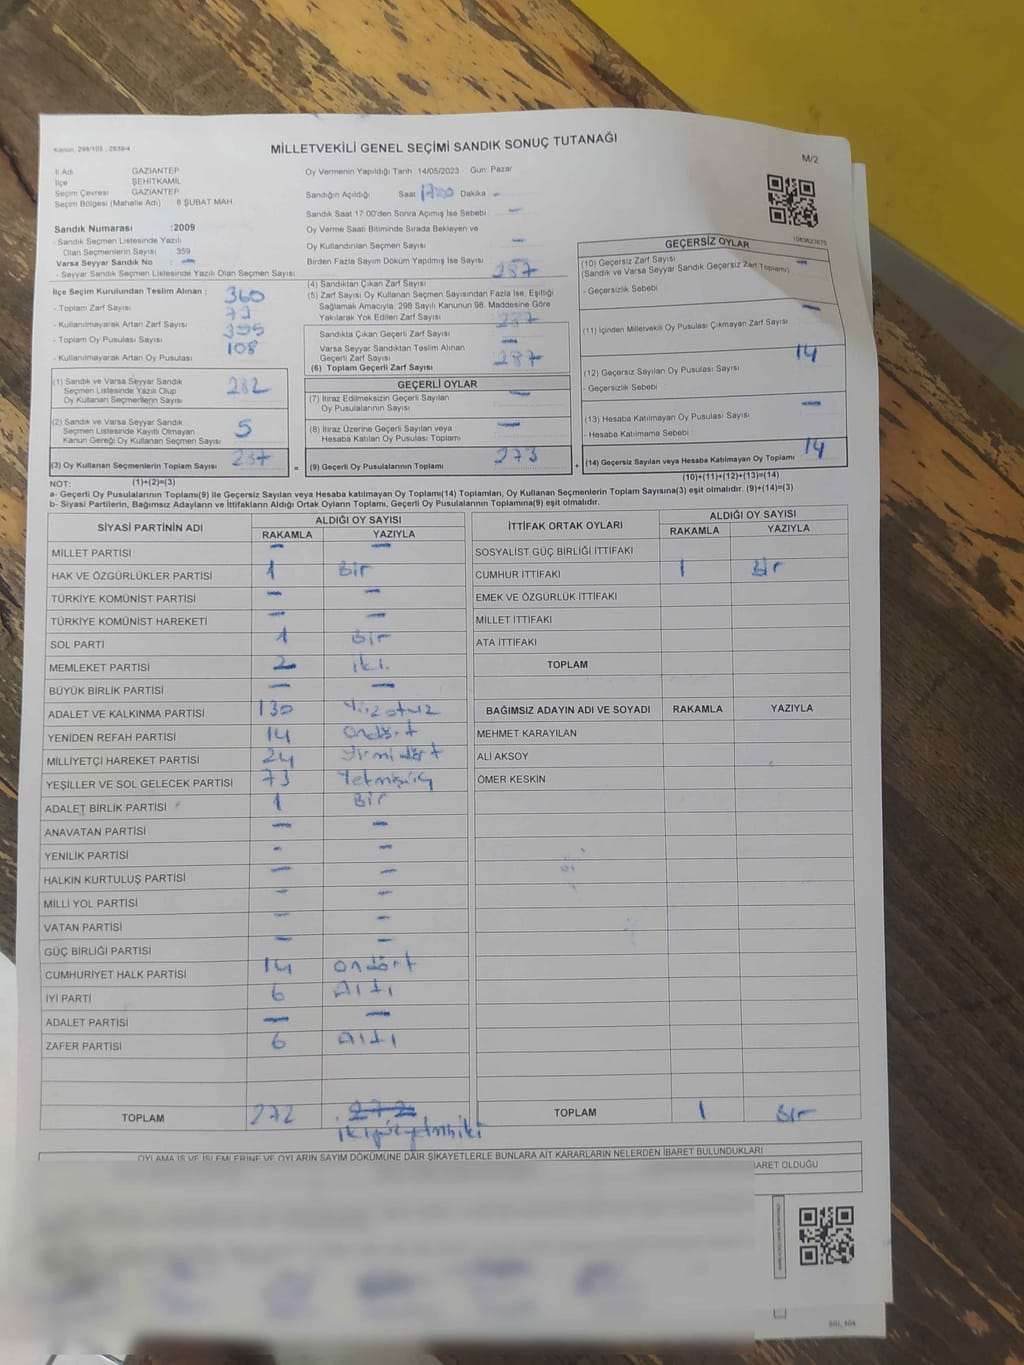 Kanun, 298/105 , 2839/4
MİLLETVEKİLİ GENEL SEÇİMİ SANDIK SONUÇ TUTANAĞI
M/2
İl Adı GAZİANTEP
İlçe ŞEHİTKAMİL
Seçim Çevresi GAZİANTEP
Seçim Bölgesi (Mahalle Adı) 6 ŞUBAT MAH.
Oy Vermenin Yapıldığı Tarih :14/05/2023 Gün: Pazar
Sandığın Açıldığı Saat 17:00 Dakika -
Sandık Saat 17:00'den Sonra Açılmış İse Sebebi : -
Oy Verme Saati Bitiminde Sırada Bekleyen ve
Oy Kullandırılan Seçmen Sayısı -
Birden Fazla Sayım Döküm Yapılmış İse Sayısı -
Sandık Numarası :2009
- Sandık Seçmen Listesinde Yazılı
Olan Seçmenlerin Sayısı : 359
Varsa Seyyar Sandık No : -
- Seyyar Sandık Seçmen Listesinde Yazılı Olan Seçmen Sayısı
İlçe Seçim Kurulundan Teslim Alınan ;
- Toplam Zarf Sayısı 360
- Kullanılmayarak Artan Zarf Sayısı 73
- Toplam Oy Pusulası Sayısı 395
- Kullanılmayarak Artan Oy Pusulası 108
(1) Sandık ve Varsa Seyyar Sandık
Seçmen Listesinde Yazılı Olup
Oy Kullanan Seçmenlerin Sayısı 282
(2) Sandık ve Varsa Seyyar Sandık
Seçmen Listesinde Kayıtlı Olmayan
Kanun Gereği Oy Kullanan Seçmen Sayısı 5
(3) Oy Kullanan Seçmenlerin Toplam Sayısı 287
(1)+(2)=(3)
(4) Sandıktan Çıkan Zarf Sayısı 287
(5) Zarf Sayısı Oy Kullanan Seçmen Sayısından Fazla İse, Eşitliği
Sağlamak Amacıyla, 298 Sayılı Kanunun 98. Maddesine Göre
Yakılarak Yok Edilen Zarf Sayısı
Sandıkta Çıkan Geçerli Zarf Sayısı 287
Varsa Seyyar Sandıktan Teslim Alınan
Geçerli Zarf Sayısı -
(6) Toplam Geçerli Zarf Sayısı 287
GEÇERLİ OYLAR
(7) İtiraz Edilmeksizin Geçerli Sayılan
Oy Pusulalarının Sayısı -
(8) İtiraz Üzerine Geçerli Sayılan veya
Hesaba Katılan Oy Pusulası Toplamı -
= (9) Geçerli Oy Pusulalarının Toplamı 273 +
GEÇERSİZ OYLAR
(10) Geçersiz Zarf Sayısı -
(Sandık ve Varsa Seyyar Sandık Geçersiz Zarf Toplamı)
- Geçersizlik Sebebi
(11) İçinden Milletvekili Oy Pusulası Çıkmayan Zarf Sayısı -
(12) Geçersiz Sayılan Oy Pusulası Sayısı 14
- Geçersizlik Sebebi
(13) Hesaba Katılmayan Oy Pusulası Sayısı -
- Hesaba Katılmama Sebebi
(14) Geçersiz Sayılan veya Hesaba Katılmayan Oy Toplamı 14
(10)+(11)+(12)+(13)=(14)
NOT:
a- Geçerli Oy Pusulalarının Toplamı(9) ile Geçersiz Sayılan veya Hesaba katılmayan Oy Toplamı(14) Toplamları, Oy Kullanan Seçmenlerin Toplam Sayısına(3) eşit olmalıdır. (9)+(14)=(3)
b- Siyasi Partilerin, Bağımsız Adayların ve İttifakların Aldığı Ortak Oyların Toplamı, Geçerli Oy Pusulalarının Toplamına(9) eşit olmalıdır.
SİYASİ PARTİNİN ADI ALDIĞI OY SAYISI
RAKAMLA YAZIYLA
MİLLET PARTİSİ - -
HAK VE ÖZGÜRLÜKLER PARTİSİ 1 Bir
TÜRKİYE KOMÜNİST PARTİSİ - -
TÜRKİYE KOMÜNİST HAREKETİ - -
SOL PARTİ 1 Bir
MEMLEKET PARTİSİ 2 iki.
BÜYÜK BİRLİK PARTİSİ - -
ADALET VE KALKINMA PARTİSİ 130 Yüzotuz
YENİDEN REFAH PARTİSİ 14 ondört
MİLLİYETÇİ HAREKET PARTİSİ 24 Yirmidört
YEŞİLLER VE SOL GELECEK PARTİSİ 73 Yetmişüç
ADALET BİRLİK PARTİSİ 1 Bir
ANAVATAN PARTİSİ - -
YENİLİK PARTİSİ - -
HALKIN KURTULUŞ PARTİSİ - -
MİLLİ YOL PARTİSİ - -
VATAN PARTİSİ - -
GÜÇ BİRLİĞİ PARTİSİ - -
CUMHURİYET HALK PARTİSİ 14 ondört
İYİ PARTİ 6 Altı
ADALET PARTİSİ - -
ZAFER PARTİSİ 6 Altı
TOPLAM 272 272
ikiyüzyetmişiki
İTTİFAK ORTAK OYLARI ALDIĞI OY SAYISI
RAKAMLA YAZIYLA
SOSYALİST GÜÇ BİRLİĞİ İTTİFAKI
CUMHUR İTTİFAKI 1 Bir
EMEK VE ÖZGÜRLÜK İTTİFAKI
MİLLET İTTİFAKI
ATA İTTİFAKI
TOPLAM
BAĞIMSIZ ADAYIN ADI VE SOYADI RAKAMLA YAZIYLA
MEHMET KARAYILAN
ALİ AKSOY
ÖMER KESKİN
TOPLAM 1 Bir
OYLAMA İŞ VE İŞLEMLERİNE VE OYLARIN SAYIM DÖKÜMÜNE DAİR ŞİKAYETLERLE BUNLARA AİT KARARLARIN NELERDEN İBARET BULUNDUKLARI
BARET OLDUĞU